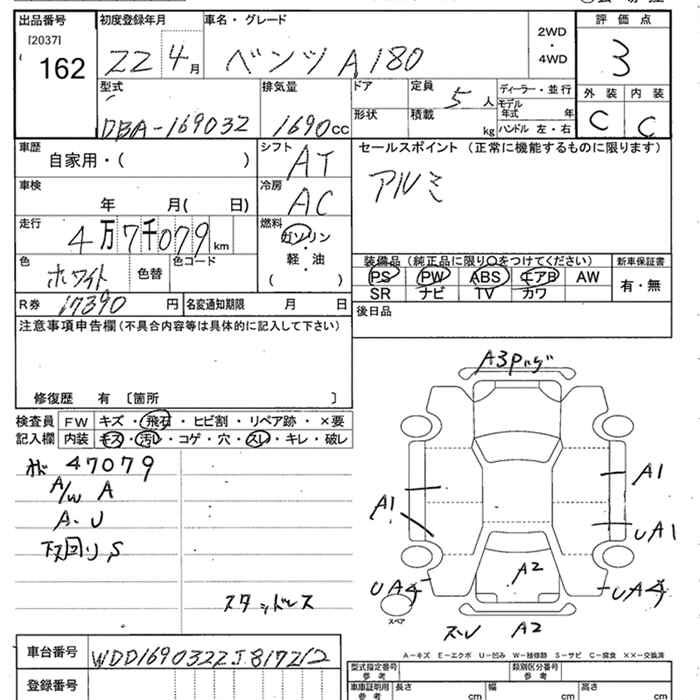 出品番号 初度登録年月 車名・グレード 2WD ・ 4WD 評価点
[2037]
162 22 4月 ベンツ A180 3
型式 排気量 ドア 定員 ディーラー・並行 外装 内装
DBA-169032 1690cc 形状 積載 5人 kg モデル年式 年 ハンドル 左・右 C C
車歴 自家用・( ) シフト AT セールスポイント (正常に機能するものに限ります)
車検 年 月( 日) 冷房 AC アルミ
走行 4万7千079km 燃料 ガソリン・軽・油 ( )
色 ホワイト 色替 色コード 装備品 (純正品に限り○をつけてください) 新車保証書
PS PW ABS エアB AW 有・無
SR ナビ TV カワ
R券 17390円 名変通知期限 月 日 後日品
注意事項申告欄(不具合内容等は具体的に記入して下さい)
修復歴 有 〔箇所 〕
検査員 FW キズ・飛石・ヒビ割・リペア跡・×要
記入欄 内装 キズ・汚レ・コゲ・穴・スレ・キレ・破レ
47079
A/W A
A・U
下回りS
スタッドレス
A3Pバグ
A1
A1
UA1
UA4
A2
UA4
スペア
スレ A2
A-キズ E-エクボ U-凹み W-補修跡 S-サビ C-腐食 ××-交換済
車台番号 WDD1690322J817212
登録番号
型式指定番号 参考 類別区分番号 参考
車庫証明用 参考 長さ cm 幅 cm 高さ cm